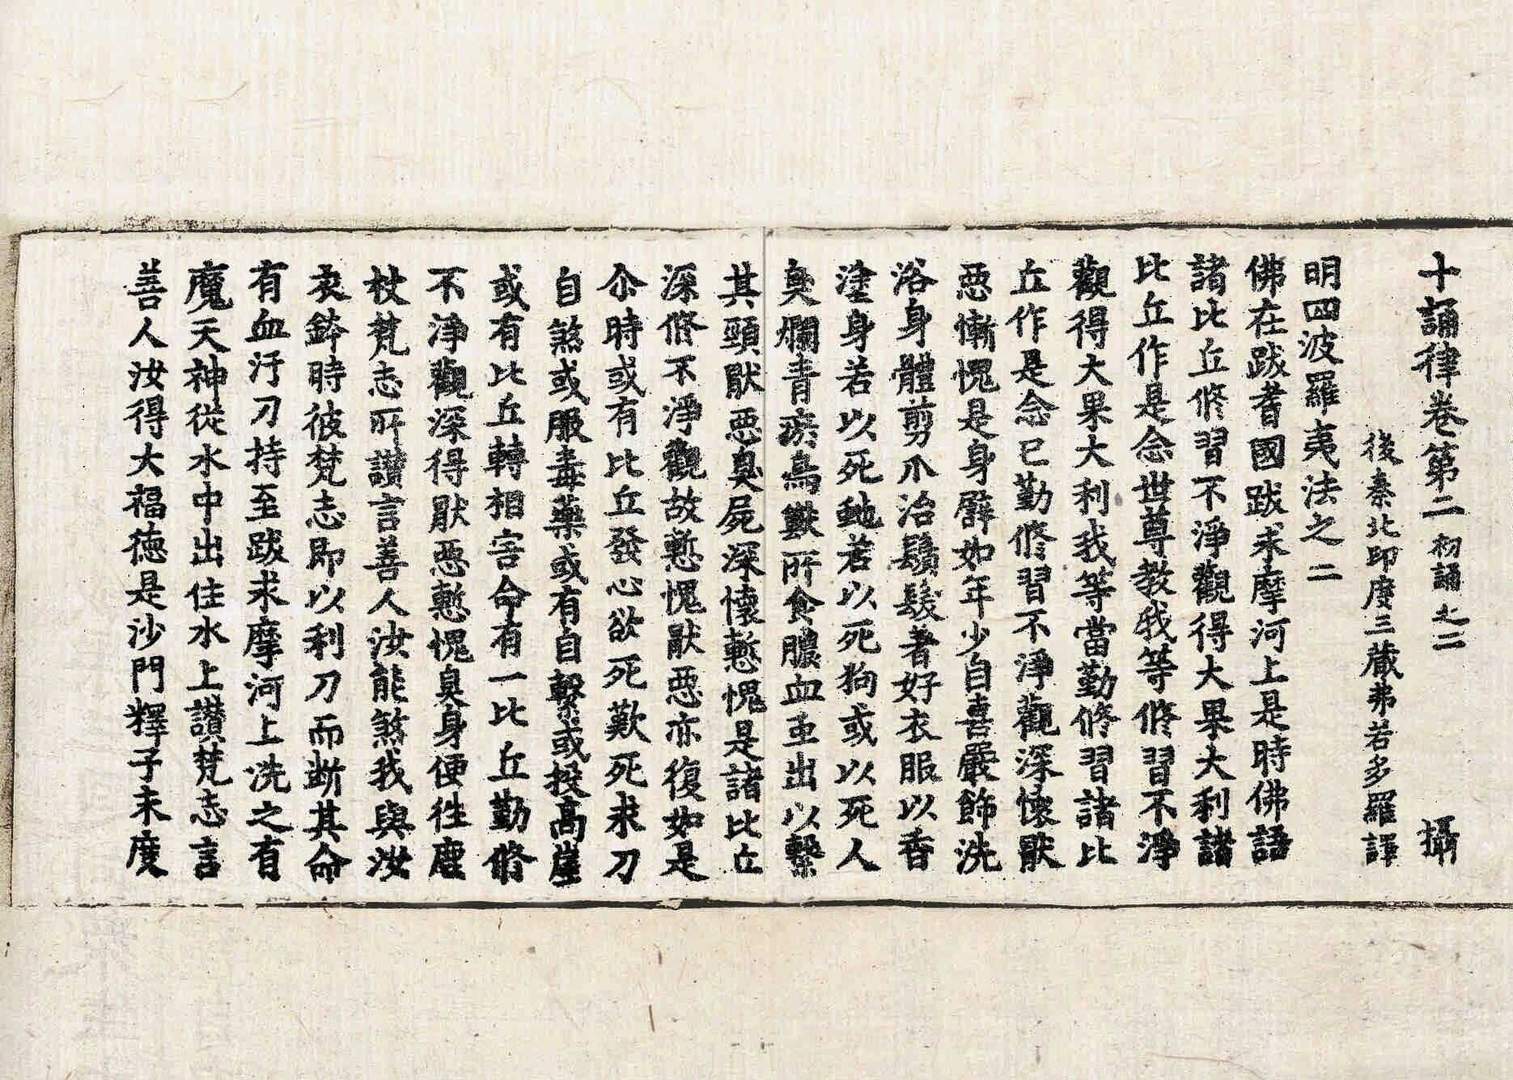 十誦律卷第二 初誦之二 攝
後秦北印度三藏弗若多羅譯
明四波羅夷法之二
佛在跋耆國跋求摩河上是時佛語
諸比丘修習不淨觀得大果大利諸
比丘作是念世尊教我等修習不淨
觀得大果大利我等當勤修習諸比
丘作是念已勤修習不淨觀深懷猒
惡慚愧是身辟如年少自喜嚴飾洗
浴身體剪爪治鬚髮著好衣服以香
塗身若以死虵若以死狗或以死人
臭爛青瘀鳥獸所食膿血䖝出以繫
其頸猒惡臭屍深懷慙愧是諸比丘
深修不淨觀故慙愧猒惡亦復如是
尒時或有比丘發心欲死歎死求刀
自煞或服毒藥或有自繫或投高崖
或有比丘轉相害命有一比丘勤修
不淨觀深得猒惡慙愧臭身便往鹿
杖梵志所讚言善人汝能煞我與汝
衣鉢時彼梵志即以利刀而斷其命
有血汙刀持至跋求摩河上洗之有
魔天神從水中出住水上讚梵志言
善人汝得大福德是沙門釋子未度